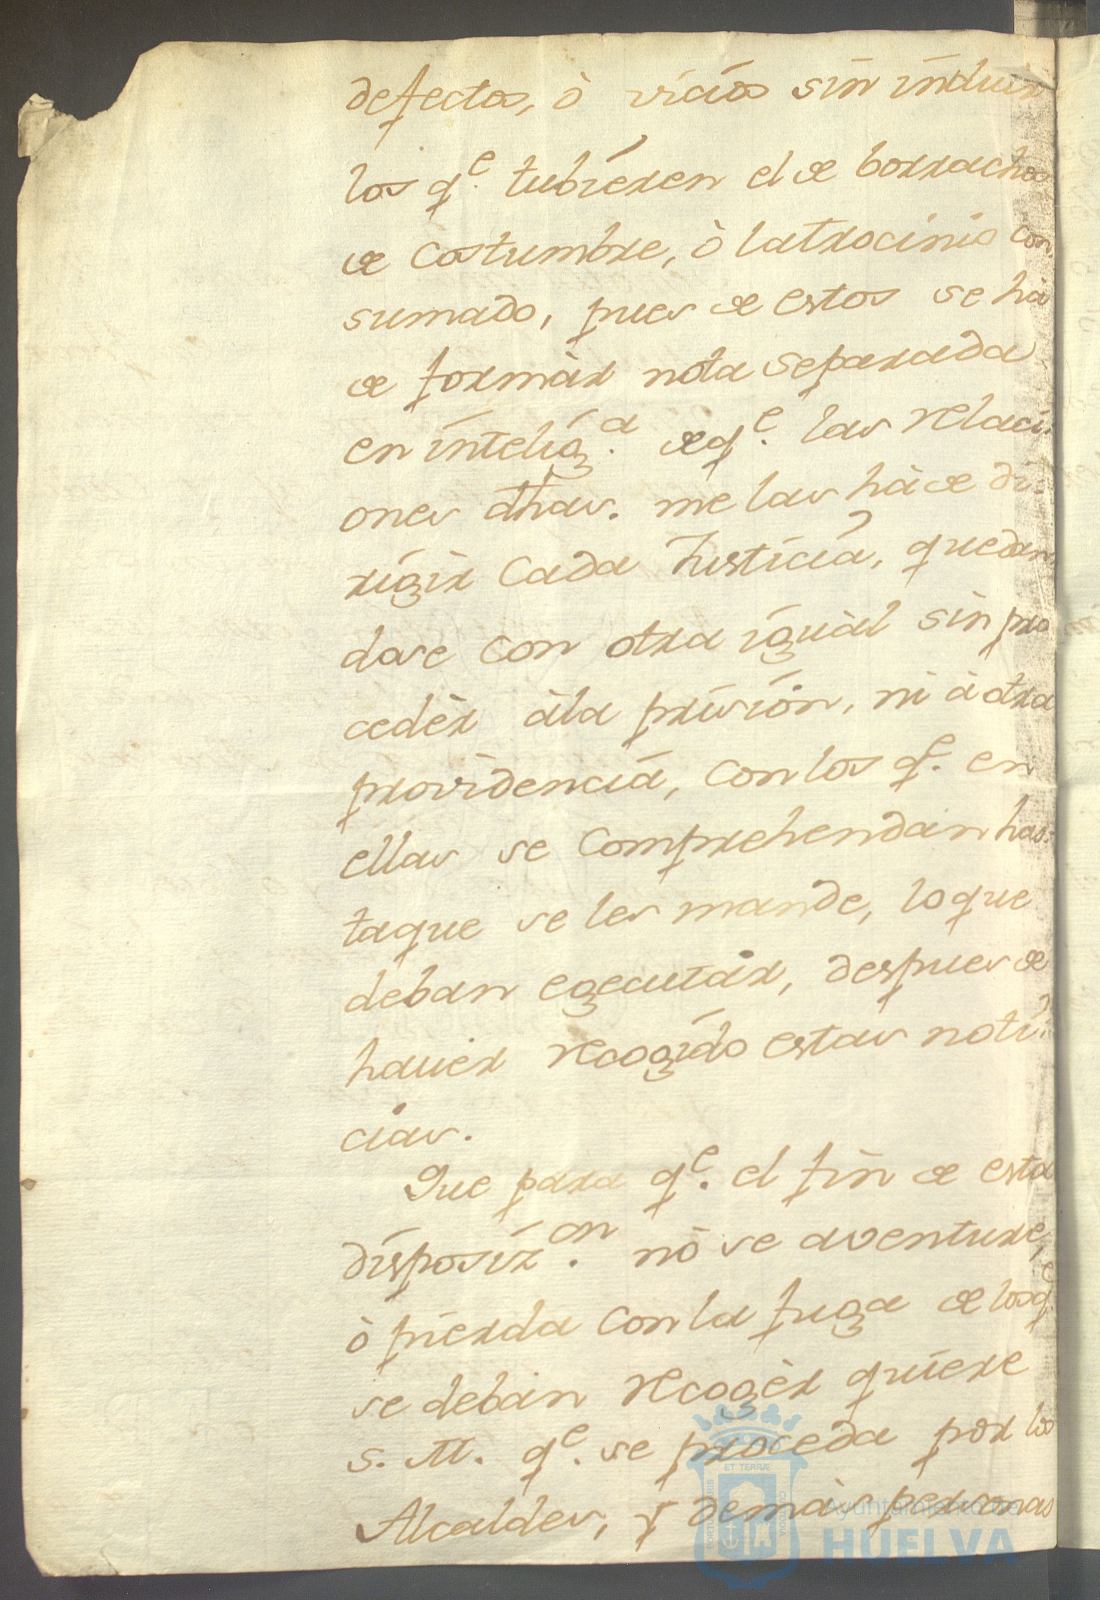 defectos, ò vicios sin incluir
los q.e tubieren el de borrachos
de Costumbre, ò latrocinio con
sumado, pues de estos se ha
de formàr nota separada
en intelig.a deq.e las relaci
ones dhas. me las hà de di-
rigir Cada Justicia, quedan
dose con otra iguàl sin pro
cedèr àla prision, ni à otra
providencia, con los q.e en
ellas se Comprehendan has-
taque se les mande, lo que
deban egecutàr, despues de
hauer recogido estas noti-
cias.
Que para q.e el fin de esta
disposiz.on nò se aventure,
ò pierda con la fuga de los q.e
se deban recogèr quiere
S. M. q.e se proceda por los
Alcaldes, y demàs personas
Ayuntamiento de
HUELVA